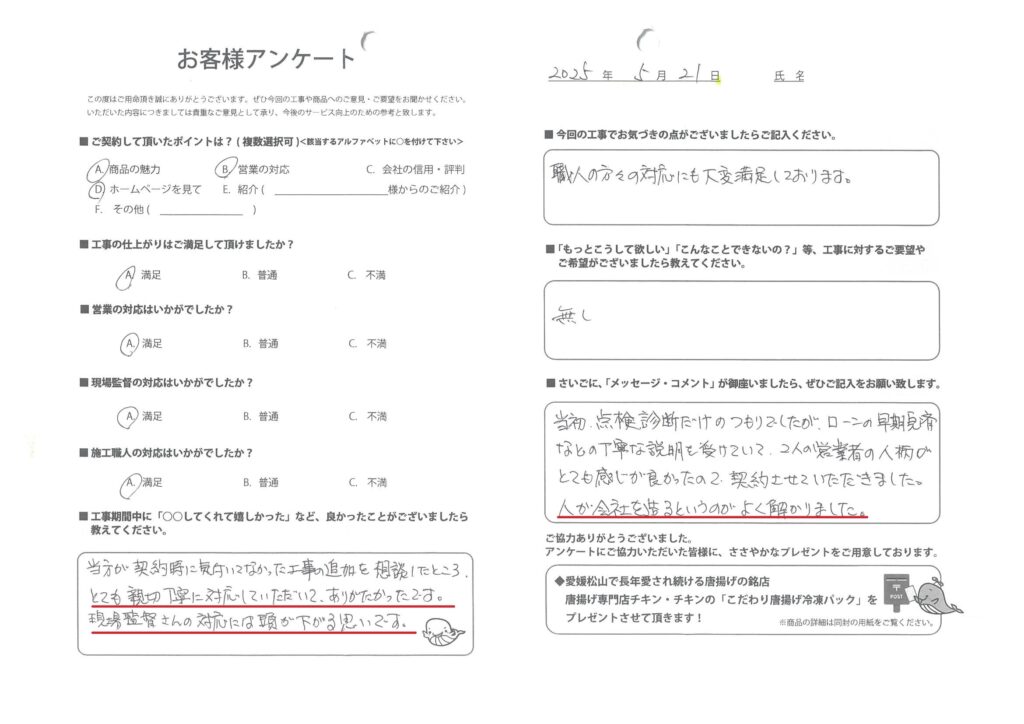 お客様アンケート
この度はご用命頂き誠にありがとうございます。ぜひ今回の工事や商品へのご意見・ご要望をお聞かせください。
いただいた内容につきましては貴重なご意見として承り、今後のサービス向上のための参考と致します。
■ ご契約して頂いたポイントは？ ( 複数選択可 ) <該当するアルファベットに○を付けて下さい>
A. 商品の魅力 B. 営業の対応 C. 会社の信用・評判
D. ホームページを見て E. 紹介 ( 様からのご紹介 )
F. その他 ( )
■ 工事の仕上がりはご満足して頂けましたか？
A. 満足 B. 普通 C. 不満
■ 営業の対応はいかがでしたか？
A. 満足 B. 普通 C. 不満
■ 現場監督の対応はいかがでしたか？
A. 満足 B. 普通 C. 不満
■ 施工職人の対応はいかがでしたか？
A. 満足 B. 普通 C. 不満
■ 工事期間中に「○○してくれて嬉しかった」など、良かったことがございましたら
教えてください。
当方が契約時に気付いてなかった工事の追加を相談したところ、
とても親切丁寧に対応していただいて、ありがたかったです。
現場監督さんの対応には頭が下がる思いです。
2025 年 5 月 21 日 氏 名
■ 今回の工事でお気づきの点がございましたらご記入ください。
職人の方々の対応にも大変満足しております。
■「もっとこうして欲しい」「こんなことできないの？」等、工事に対するご要望や
ご希望がございましたら教えてください。
無し
■ さいごに、「メッセージ・コメント」が御座いましたら、ぜひご記入をお願い致します。
当初、点検診断だけのつもりでしたが、ローンの早期完済
などの丁寧な説明を受けていて、2人の営業者の人柄が
とても感じが良かったので、契約させていただきました。
人が会社を造るというのがよく解かりました。
ご協力ありがとうございました。
アンケートにご協力いただいた皆様に、ささやかなプレゼントをご用意しております。
◆愛媛松山で長年愛され続ける唐揚げの銘店
唐揚げ専門店チキン・チキンの「こだわり唐揚げ冷凍パック」を
プレゼントさせて頂きます！
POST
※商品の詳細は同封の用紙をご覧ください。